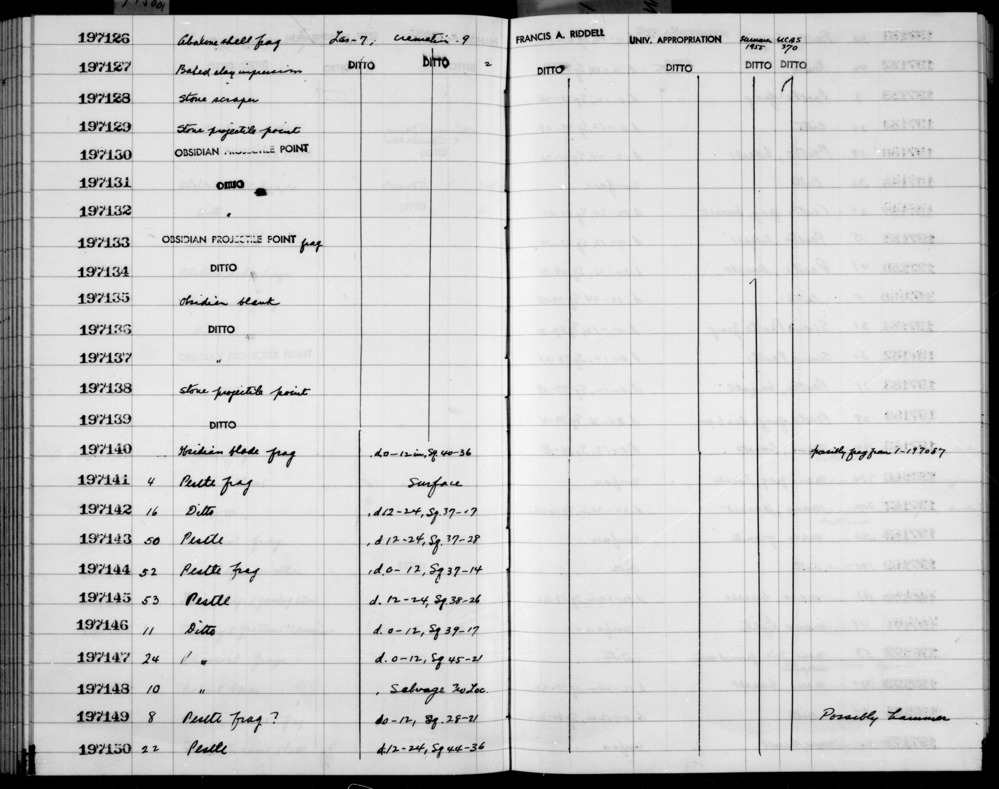 197126 Abalone shell frag Las-7, cremation-9 FRANCIS A. RIDDELL UNIV. APPROPRIATION Summer 1955 UCAS 370
197127 Baked clay impression DITTO DITTO 2 DITTO DITTO DITTO DITTO
197128 Stone scraper
197129 Stone projectile point
197130 OBSIDIAN PROJECTILE POINT
197131 DITTO
197132 "
197133 OBSIDIAN PROJECTILE POINT frag
197134 DITTO
197135 Obsidian blank
197136 DITTO
197137 "
197138 Stone projectile point
197139 DITTO
197140 Obsidian blade frag , d.0-12 in, Sq 40-36 possibly frag from 1-197087
197141 4 Pestle frag Surface
197142 16 Ditto , d 12-24, Sq. 37-17
197143 50 Pestle , d 12-24, Sq. 37-28
197144 52 Pestle frag , d. 0-12, Sq 37-14
197145 53 Pestle d. 12-24, Sq 38-26
197146 11 Ditto d. 0-12, Sq 39-17
197147 24 " d. 0-12, Sq 45-21
197148 10 " , Salvage No Loc.
197149 8 Pestle frag? d0-12, Sq. 28-21 Possibly hammer
197150 22 Pestle d. 12-24, Sq 44-36